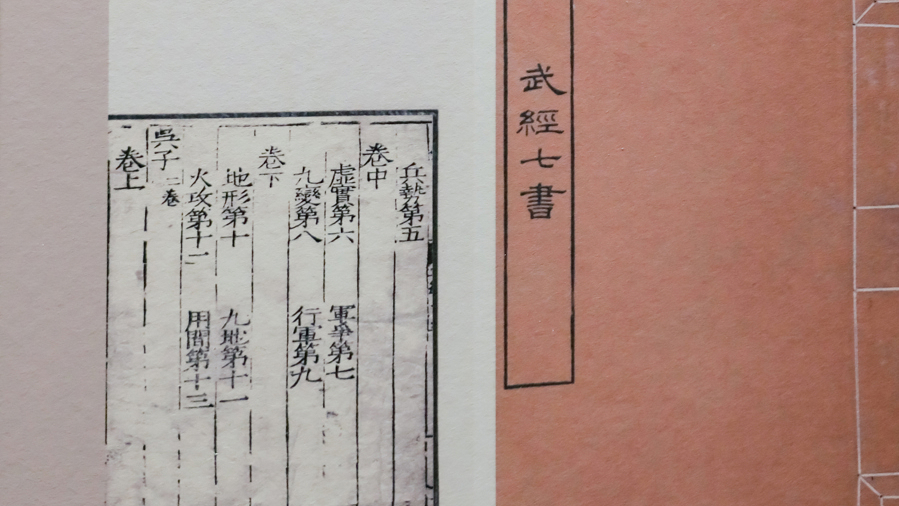 武經七書
兵勢第五
卷中
虛實第六 軍爭第七
九變第八 行軍第九
卷下
地形第十 九地第十一
火攻第十二 用間第十三
吳子 二卷
卷上